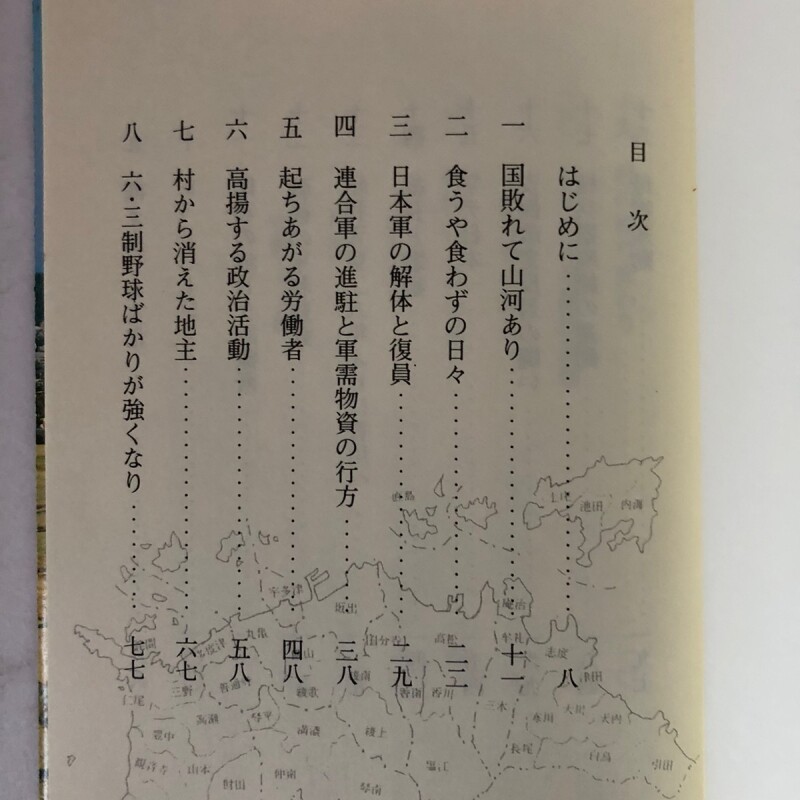 目次
はじめに……………………八
一 国敗れて山河あり……………………十一
二 食うや食わずの日々……………………二二
三 日本軍の解体と復員……………………二九
四 連合軍の進駐と軍需物資の行方……………三八
五 起ちあがる労働者……………………四八
六 高揚する政治活動……………………五八
七 村から消えた地主……………………六七
八 六・三制野球ばかりが強くなり……………七七
内海
池田
土庄
直島
宇多津
坂出
庵治
丸亀
国分寺
高松
牟礼
志度
津田
仁尾
三野
善通寺
綾歌
綾南
香南
香川
三木
大川
大内
高瀬
琴平
満濃
綾上
寒川
長尾
豊中
白鳥
引田
観音寺
山本
財田
仲南
琴南
塩江